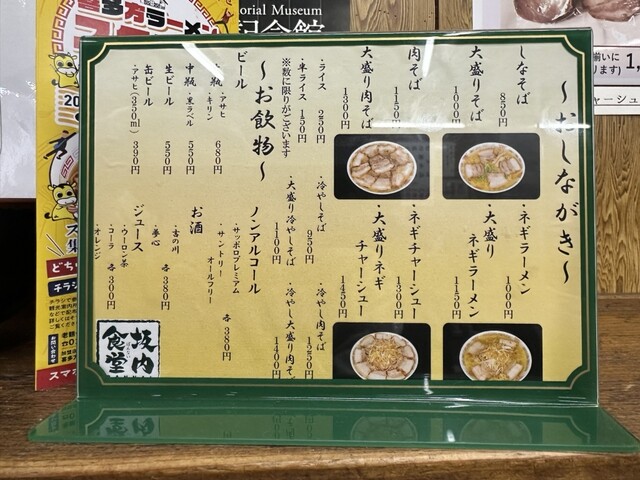 ～おしながき～
しなそば
850円
大盛りそば
1000円
肉そば
1150円
大盛り肉そば
1300円
・ネギラーメン
1000円
・大盛り
ネギラーメン
1150円
・ネギチャーシュー
1300円
・大盛りネギ
チャーシュー
1450円
・ライス 250円
・半ライス 150円
※数に限りがございます
・冷やしそば
950円
・大盛り冷やしそば
1100円
・冷やし肉そば
1250円
・冷やし大盛り肉そ
1400円
～お飲物～
ビール
・アサヒ
・キリン
680円
中瓶・黒ラベル
550円
生ビール
550円
缶ビール
・アサヒ(350ml) 390円
ノンアルコール
・サッポロプレミアム
・サントリー
オールフリー
各380円
お酒
・吉の川
・夢心
各380円
ジュース
・ウーロン茶
・コーラ
・オレンジ
各300円
坂内
食堂
orial Museum
記念館
多方ラーメン
どち
チラシ
スマホ
お問い合わせ
揃いに
ります)
1,
ャーシュ